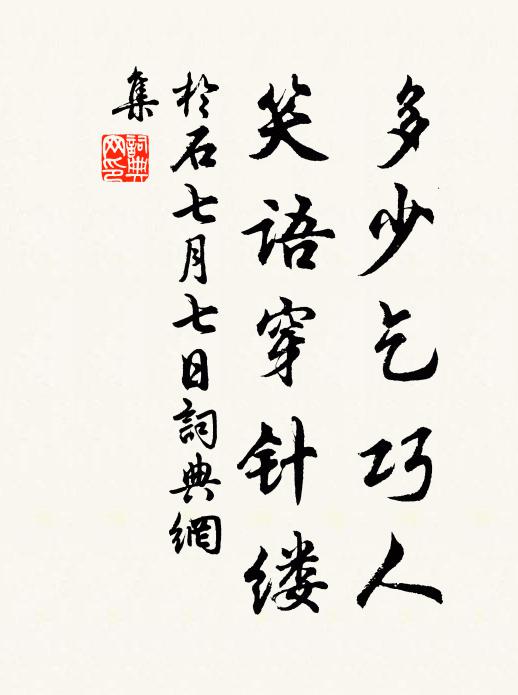 多少乞巧人
笑語穿针缕
於石七月七日詞典網
集
詞典
网印